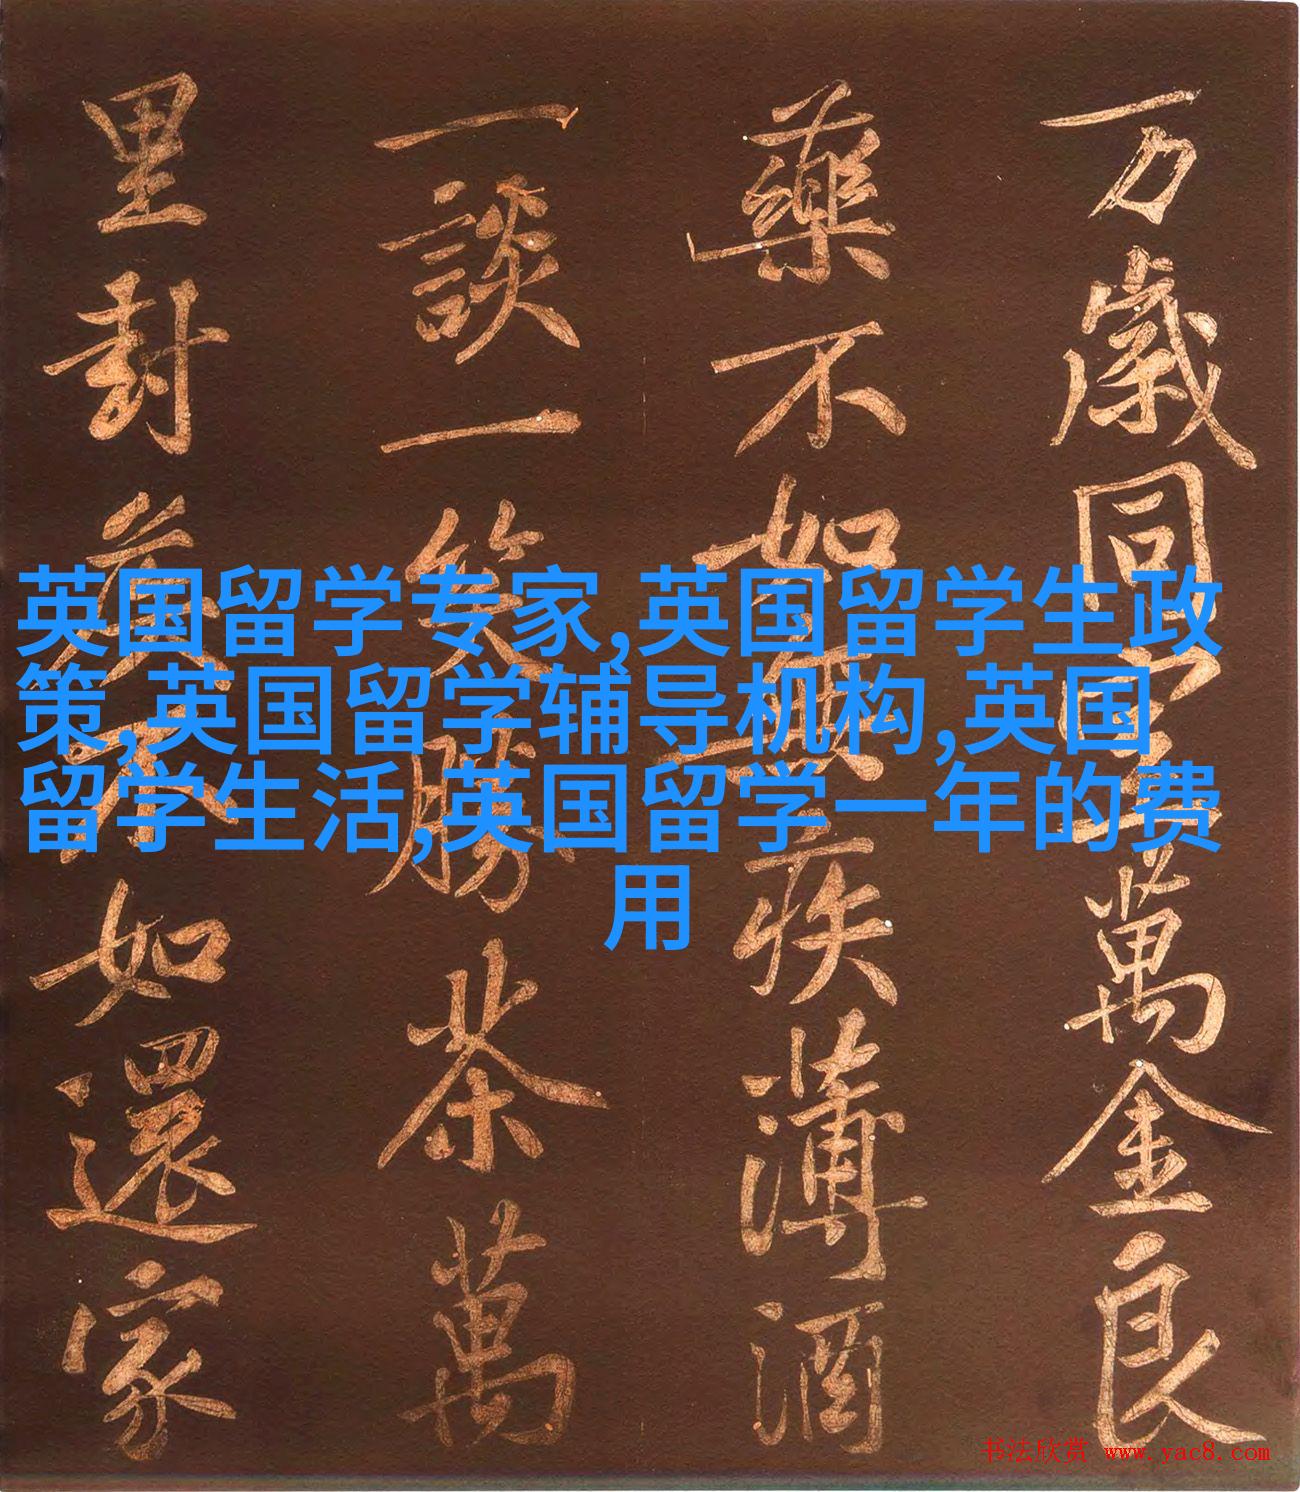 万歲同金良
藥不如無疾薄酒
一談一笑勝茶萬
里封侯不如還家
英国留学专家,英国留学生政
策,英国留学辅导机构,英国
留学生活,英国留学一年的费
用
书法欣赏 www.yac8.com